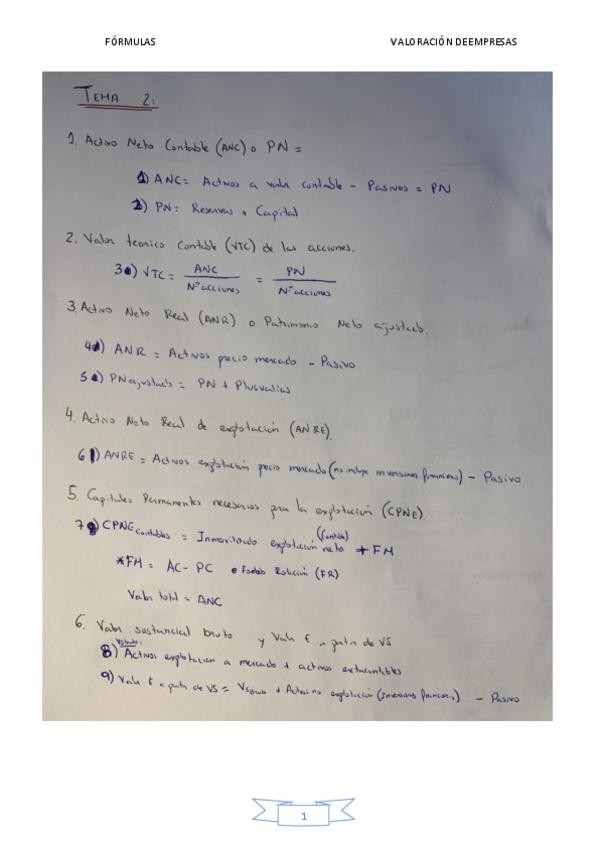 FÓRMULAS VALORACIÓN DE EMPRESAS
TEMA 2:
1. Activo Neto Contable (ANC) o PN =
1) ANC = Activos a valor contable - Pasivos = PN
2) PN = Reservas + Capital
2. Valor teorico Contable (VTC) de las acciones.
3) VTC = ANC / Nº acciones = PN / Nº acciones
3. Activo Neto Real (ANR) o Patrimonio Neto ajustado.
4) ANR = Activos precio mercado - Pasivo
5) PNajustado = PN + Plusvalías
4. Activo Neto Real de explotación (ANRE).
6) ANRE = Activos explotación precio mercado (no incluye inversiones financieras) - Pasivo
5. Capitales Permanentes necesarios para la explotación (CPNE).
7) CPNE contables = Inmovilizado explotación neto (Contable) + FM
*FM = AC - PC o Fondo Rotación (FR)
Valor total = ANC
6. Valor sustancial bruto y Valor € a partir de VS
8) VSbruto: Activos explotacion a mercado + activos extracontables
9) Valor € a partir de VS = VSbruto + Activo no explotación (Inversiones financieras) - Pasivo
1